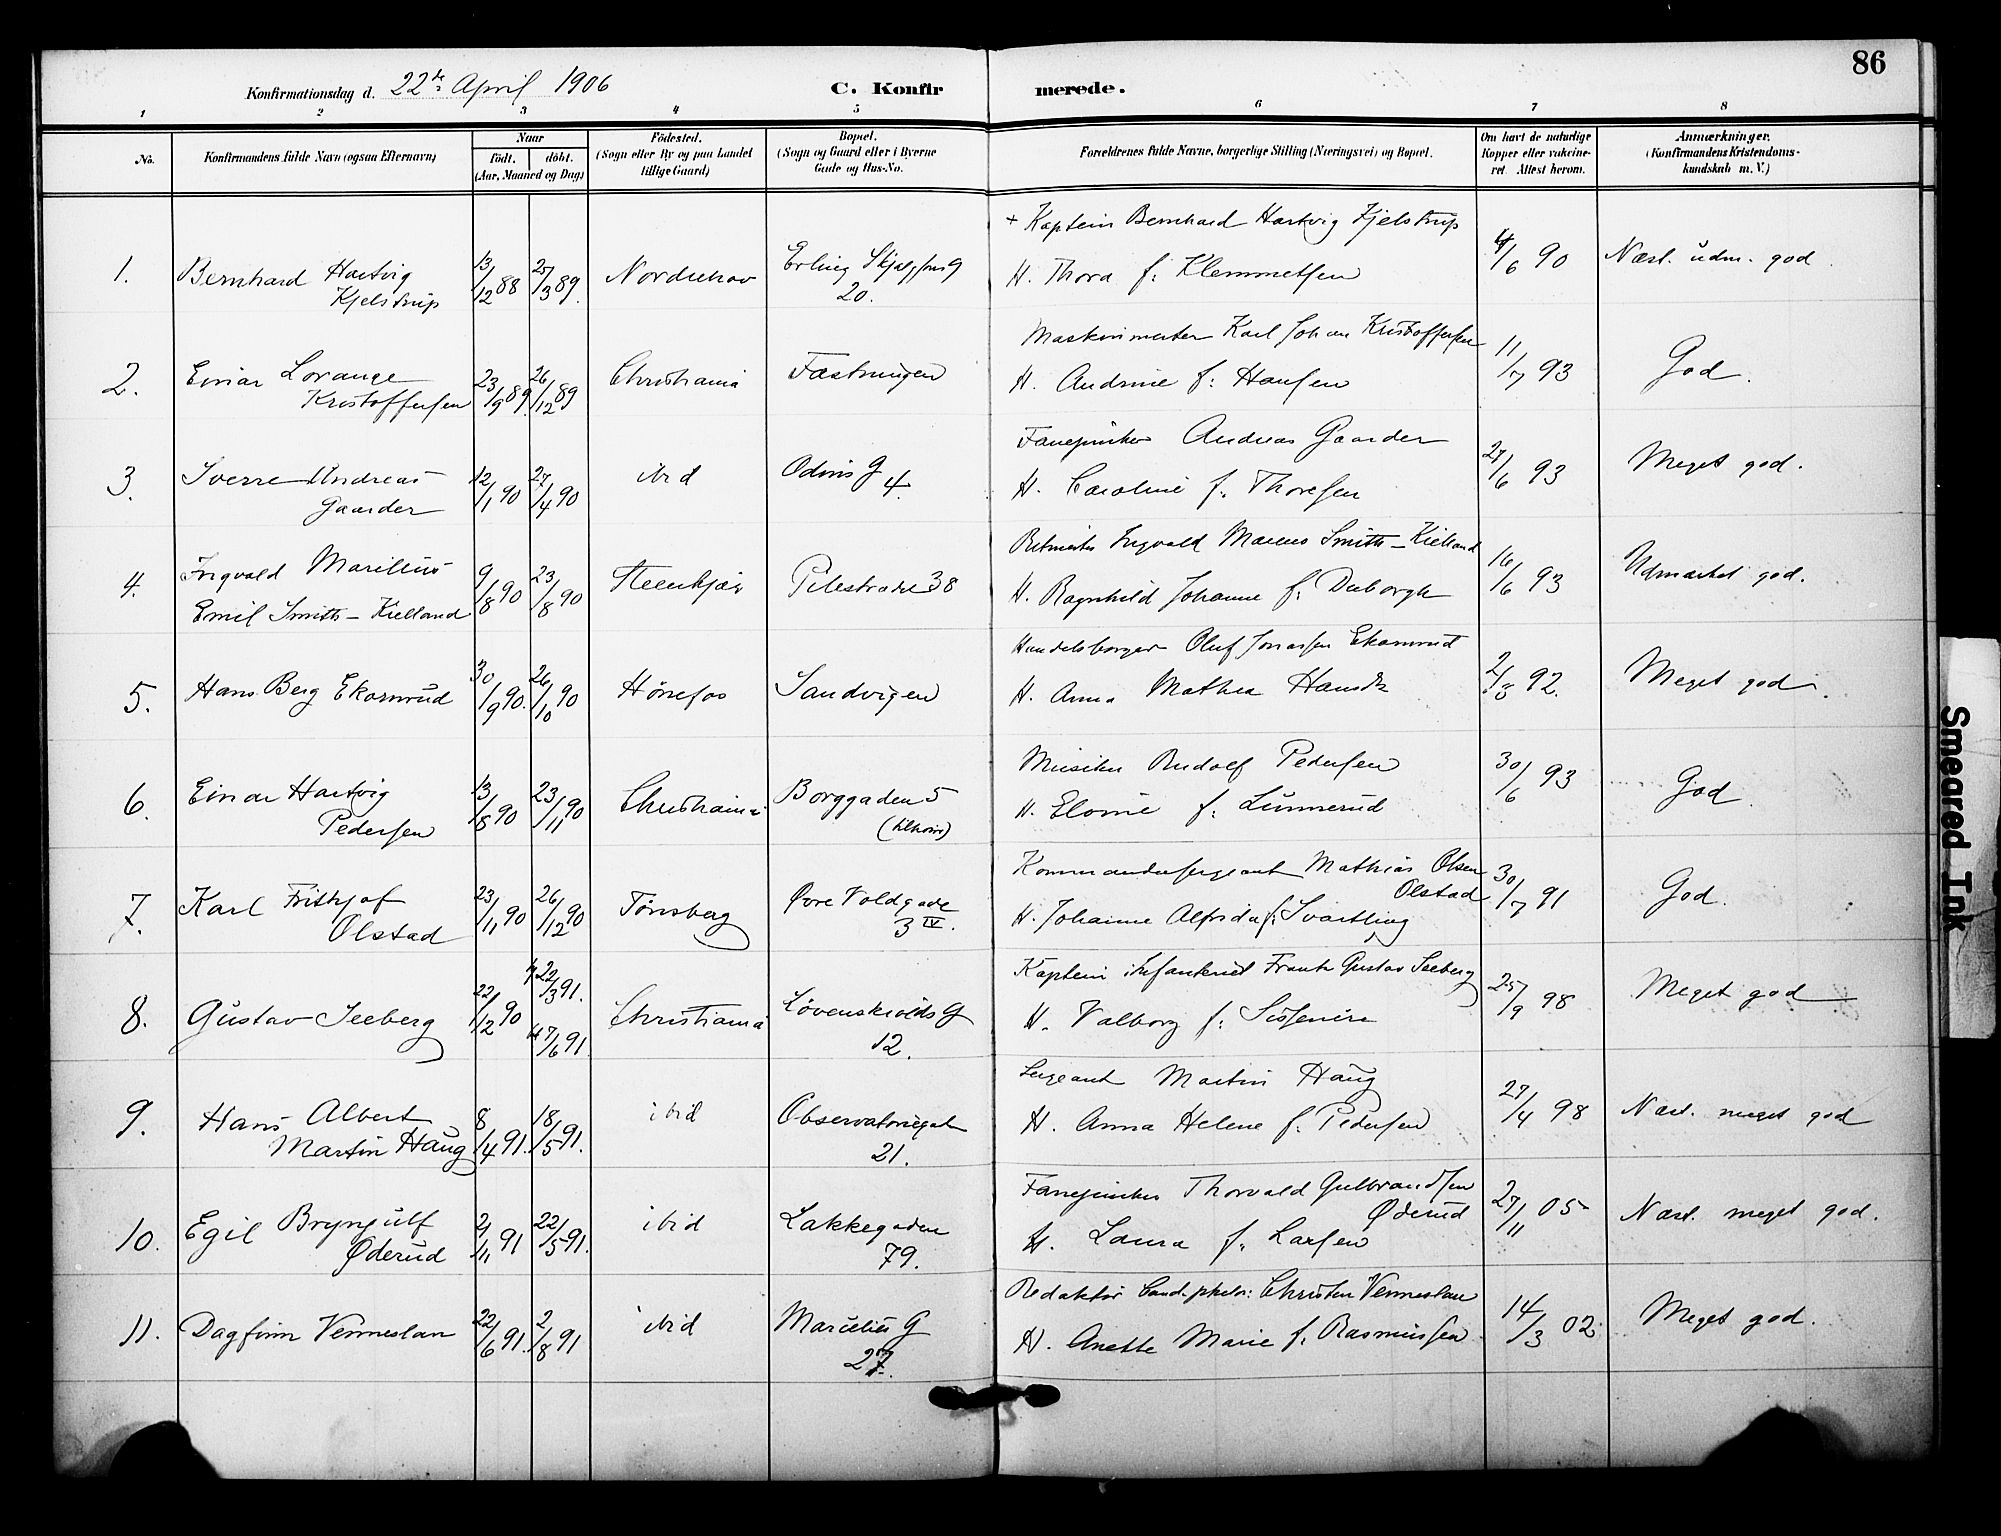 86
Konfirmationsdag d. 22de April 1906
C. Konfirmerede.
1 2 3 4 5 6 7 8
No.
Konfirmandens fulde Navn (ogsaa Efternavn)
Naar
födt. döbt.
(Aar, Maaned og Dag)
Födested.
(Sogn eller By og paa Landet
tillige Gaard)
Bopæl.
(Sogn og Gaard eller i Byerne
Gade og Hus-No.
Forældrenes fulde Navne, borgerlige Stilling (Næringsvei) og Bopæl.
Om havt de naturlige
Kopper eller vakcine-
ret. Attest herom.
Anmærkninger.
(Konfirmandens Kristendoms-
kundskab m. V.)
1. Bernhard Hartvig
Kjelstrup
13/12 88 25/3 89.
Norderhov
Erling Skjalgsøns G
20.
+ Kaptein Bernhard Hartvig Kjelstrup
H. Thora f: Klemmetsen
4/6 90
Næst. udm. god
2. Einar Lorange
Kristoffersen
23/9 89 26/12 89
Christiania
Fæstningen
Maskinmester Karl Johan Kristoffersen
H. Andrine f: Hansen
11/7 93
God.
3. Sverre Andreas
Gaarder
12/1 90 27/4 90
ibid
Odins G 4.
Fanejunker Andreas Gaarder
H. Caroline f: Thoresen
27/6 93
Meget god.
4. Ingvald Marillius
Emil Smith-Kielland
9/8 90 23/8 90
Steenkjær
Pilestrædet 38
Ritmester Ingvald Marius Smith-Kielland
H. Ragnhild Johanne f:
16/6 93
Udmærket god.
5. Hans Berg Ekornrud
30/9 90. 26/10 90
Hønefos
Sandvigen
Handelsborger Oluf Jonassen Ekornrud
H. Anna Mathea Hansdtr
2/8 92.
Meget god.
6. Einar Hartvig
Pedersen
13/8 90 23/11 90
Christiania
Borggaden 5
Musiker Rudolf Pedersen
H. f: Lunnerud
30/6 93
God.
7. Karl Frithjof
Olstad
23/1 90 26/12 90
Tönsberg
Øvre Voldgade
3 IV.
Kommandersergeant Mathias Olsen
Olstad
H. Johanne f: Svartling
30/7 91
God.
8. Gustav Seeberg
22/12 90
22/3 91.
7/6 91.
Christiania
Løvenskiolds G
12.
Kaptein i Infanteriet Frantz Gustav Seeberg
H. Valborg f: Sissener
25/9 98
Meget god
9. Hans Albert
Martin Haug
8/4 91. 18/5 91.
ibid
Observatoriegat
21.
Sergeant Martin Haug
H. Anna Helene f. Pedersen
27/4 98
Næst. meget god
10. Egil Bryngulf
Øderud
2/11 91 22/5 91.
ibid
Lakkegaden
79.
Fanejunker Thorvald Gulbrandsen
Øderud
H. Laura f. Larsen
27/11 05
Næst. meget god.
11. Dagfinn Venneslan
22/6 91. 2/8 91
ibid
Marcelius G
27.
Redaktør Cand. philos: Christen Venneslan
H. Anette Marie f. Rasmussen
14/3 02.
Meget god.
Smeared Ink